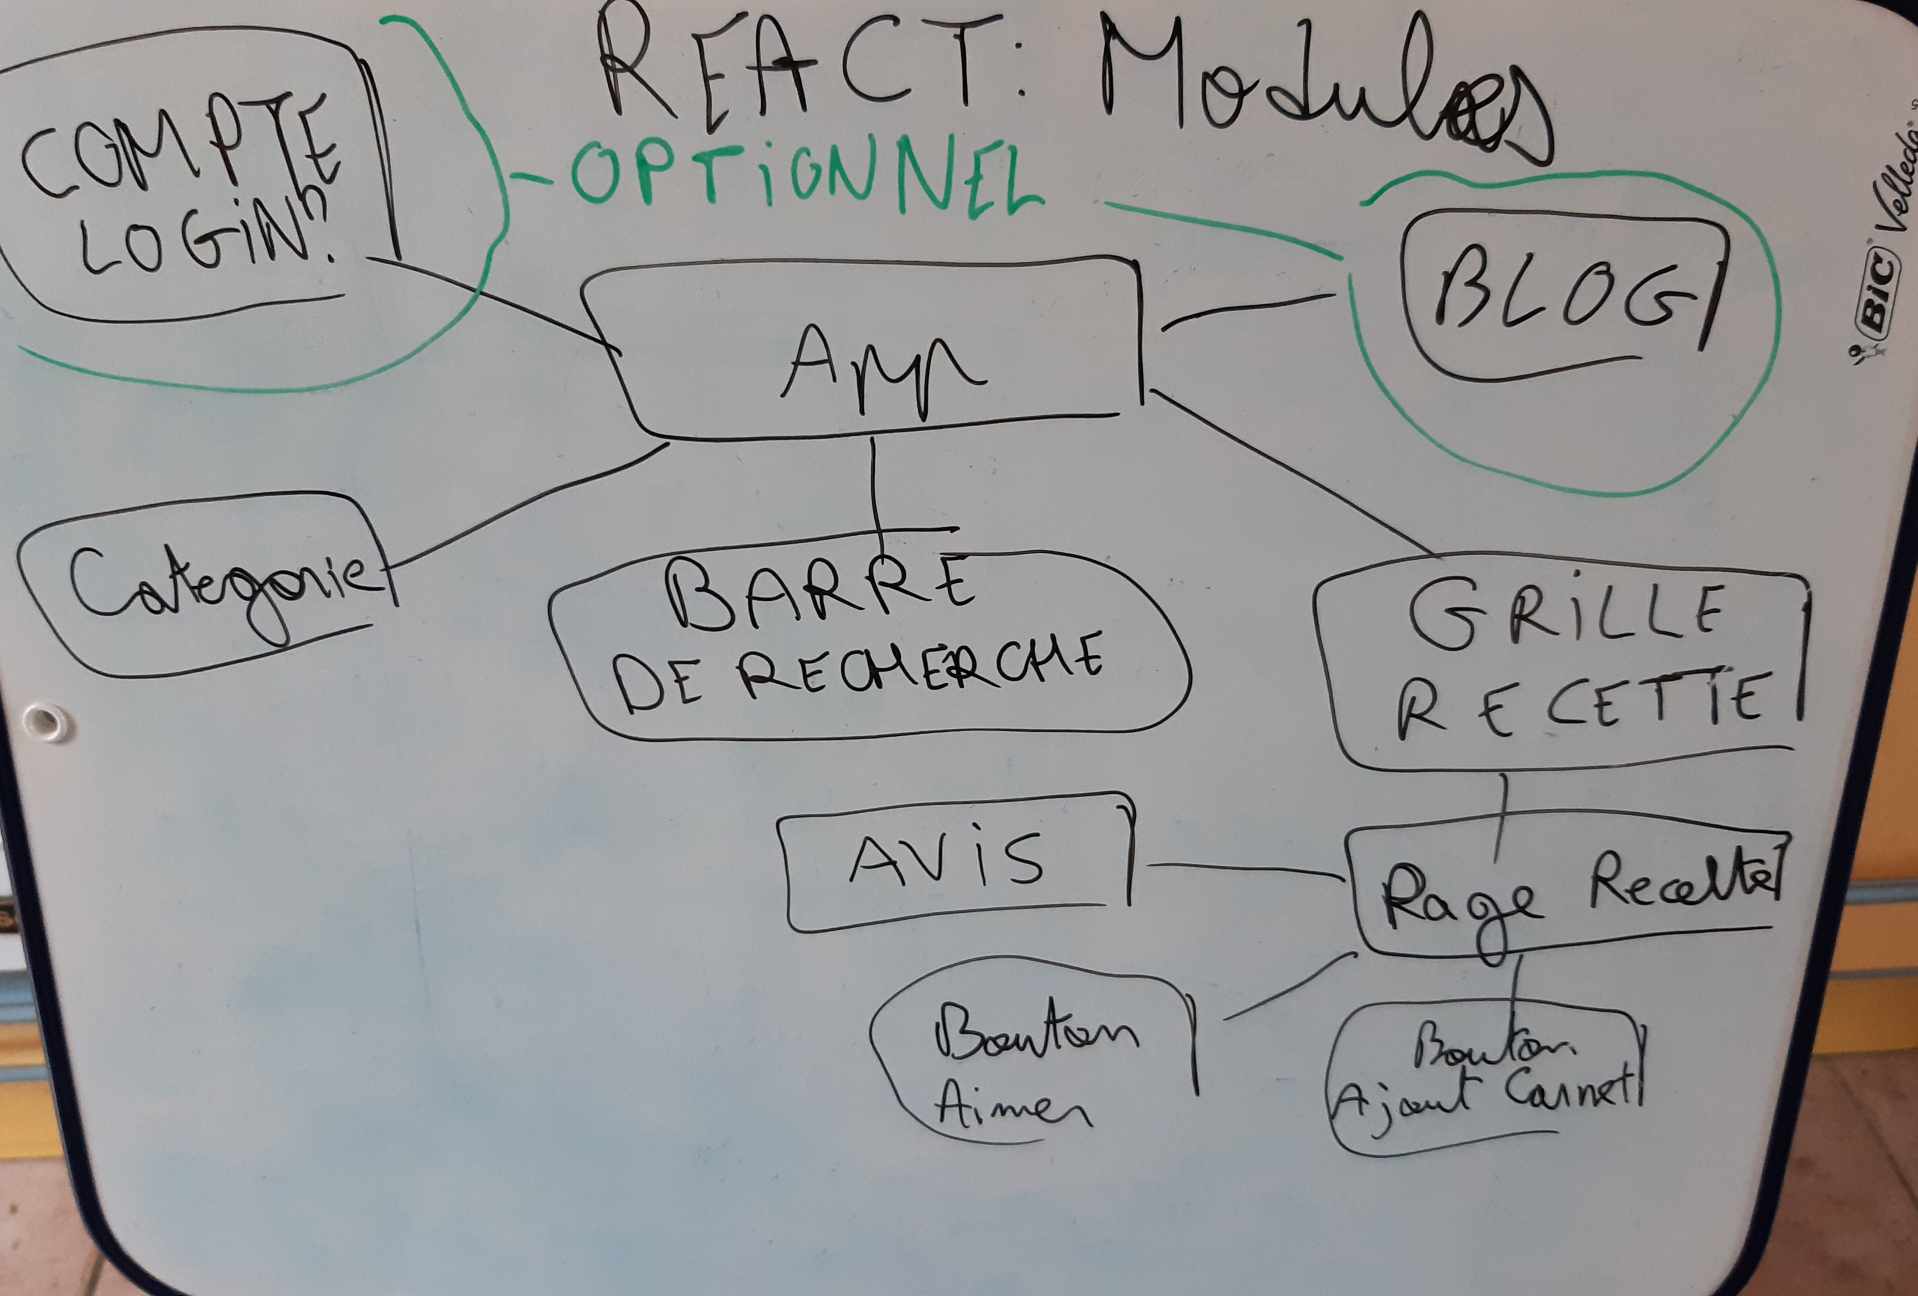 REACT: Modules
COMPTE
LOGIN?
OPTIONNEL
BLOG
App
Categorie
BARRE
DE RECHERCHE
GRILLE
RECETTE
AVIS
Page Recette
Bouton
Aimer
Bouton
Ajout Carnet
BIC Velleda